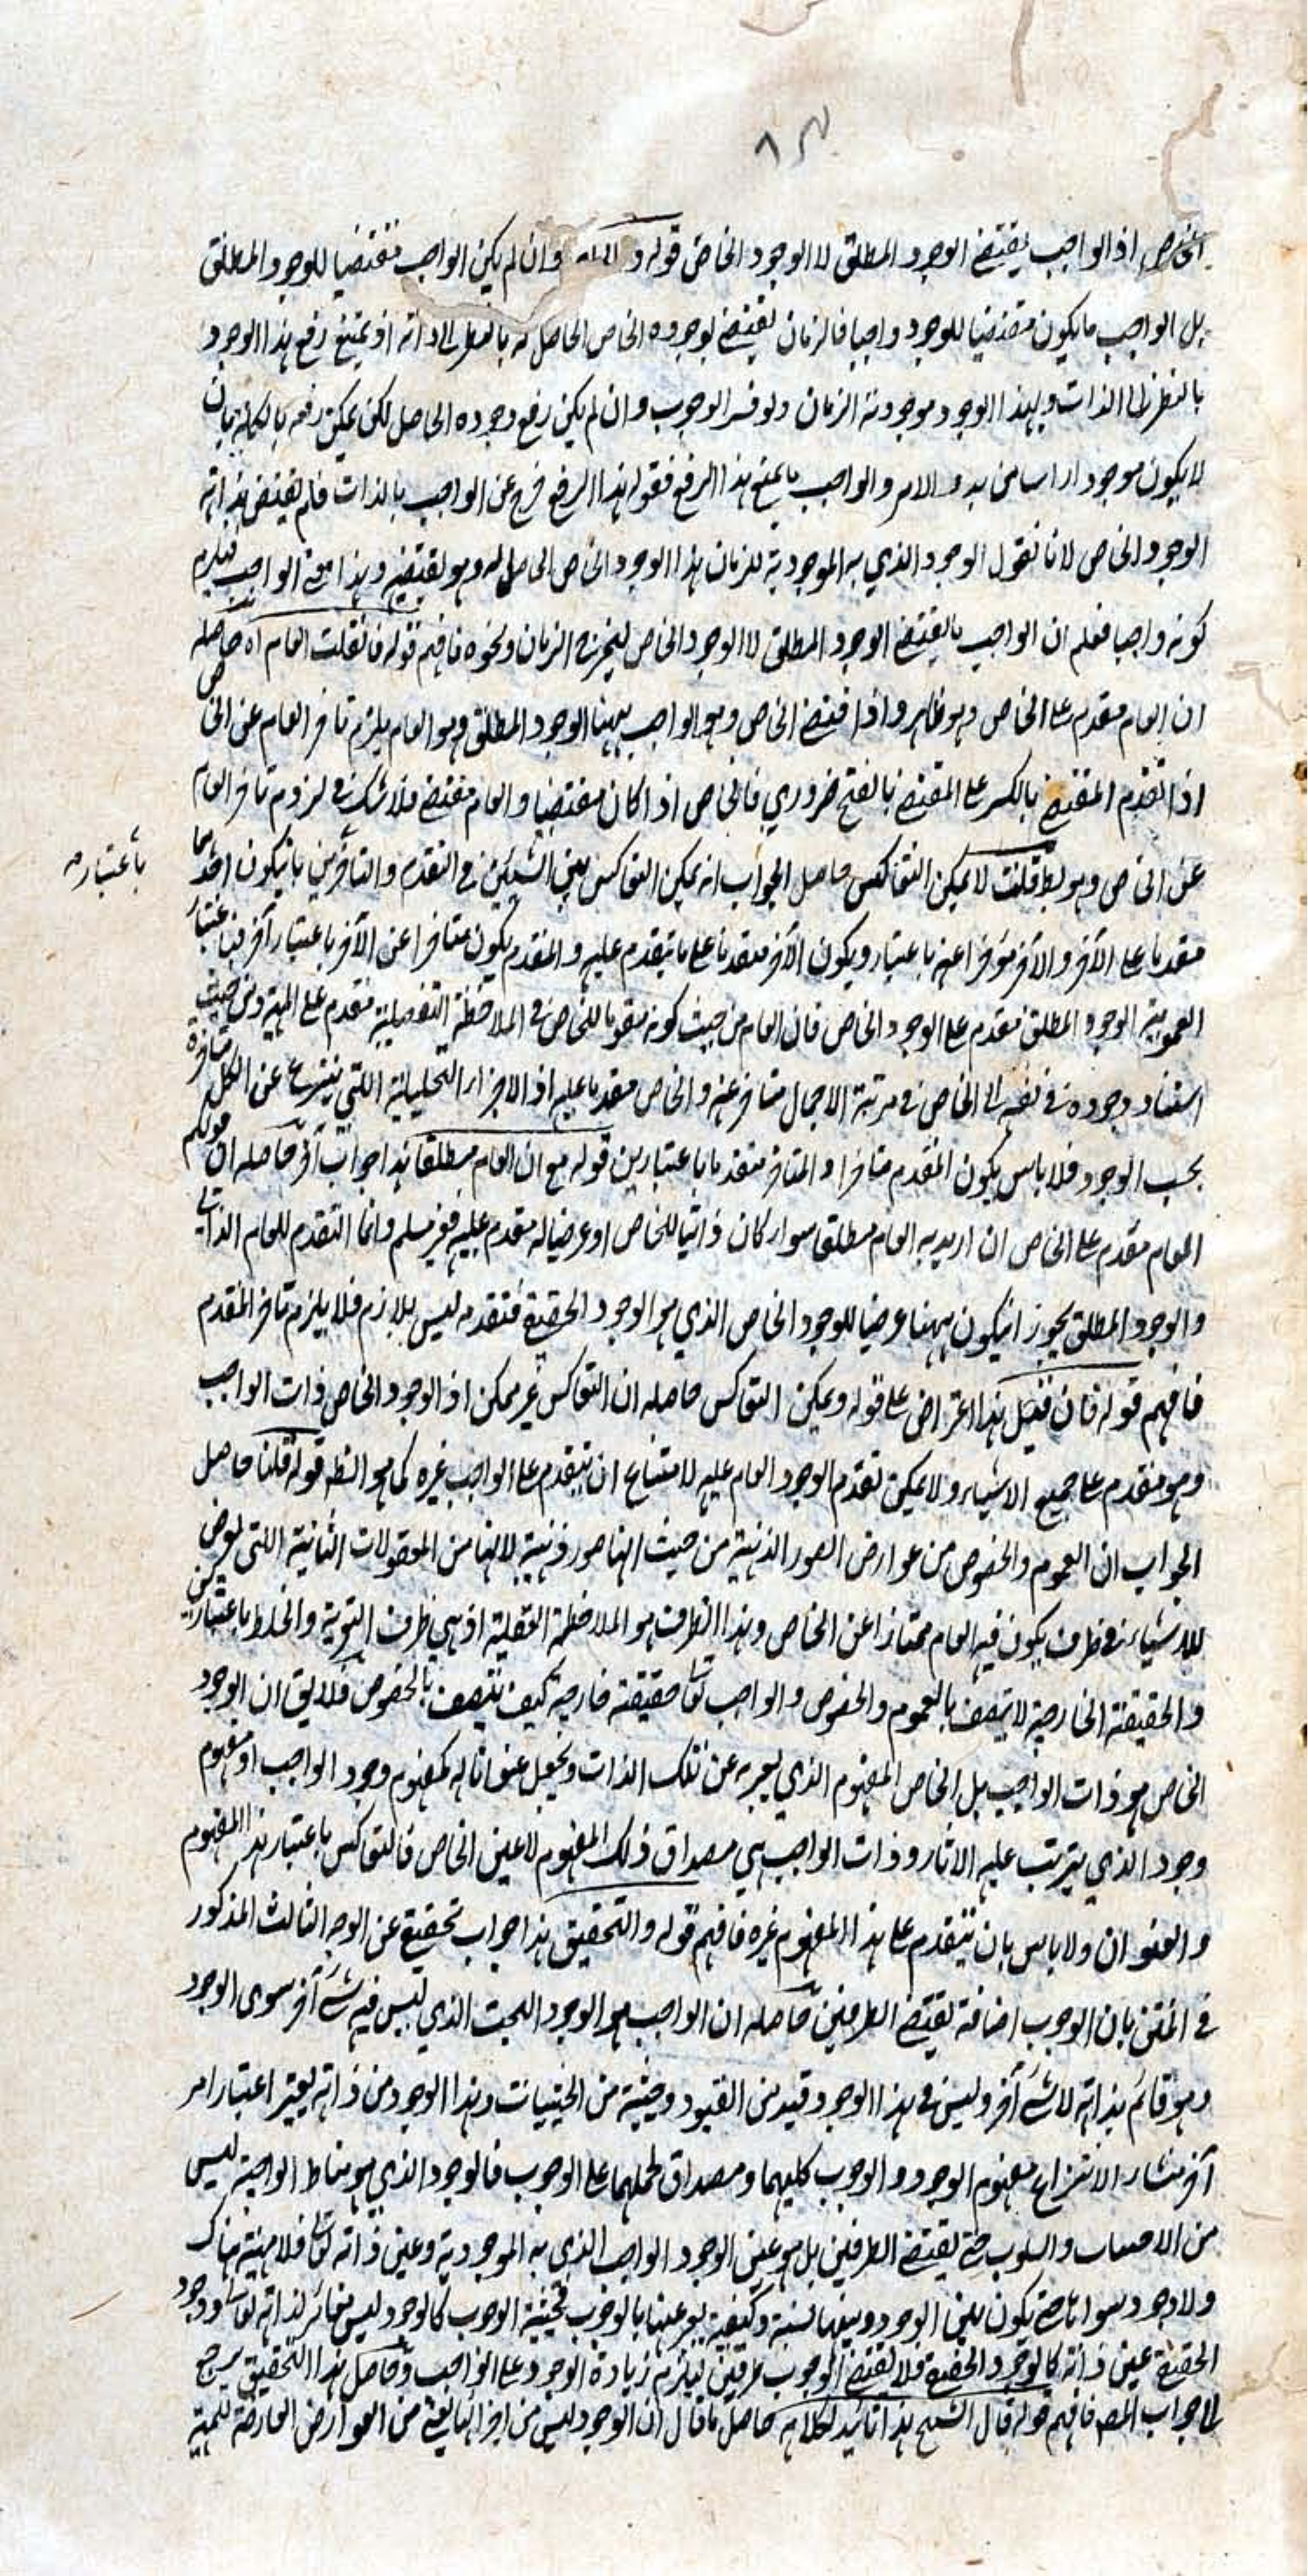 ٨٣
الخاص اذ الواجب يقتضي الوجود المطلق لا الوجود الخاص قوله و وان لم يكن الواجب مقتضيا للوجود المطلق
بل الواجب ما يكون مقتضيا للوجود واجبا فالزمان يقتضي لوجوده الخاص الحاصل له بالنظر الى ذاته اذ يمتنع رفع هذا الوجود
بالنظر الى الذات وبهذا الوجود موجودية الزمان ولو فسر الوجوب وان لم يكن رفع وجوده الحاصل لكن يمكن رفعه بالكلية بان
لا يكون موجودا راسا من بدو الامر والواجب ما يمتنع هذا الرفع فقوله هذا الرفع خرج عن الواجب بالذات فلم يقتض بذاته
الوجود الخاص لانا نقول الوجود الذي به الموجودية للزمان هذا الوجود الخاص الحاصل له وهو يقتضيه وهذا معنى الواجب فيلزم
كونه واجبا فعلم ان الواجب ما يقتضي الوجود المطلق لا الوجود الخاص ليخرج الزمان ونحوه فافهم قوله فان قلت العام آه حاصله
ان العام مقدم على الخاص وهو ظاهر واذا اقتضى الخاص وهو الواجب ههنا الوجود المطلق وهو العام يلزم تاخر العام عن الخاص
اذ تقدم المقتضي بالكسر على المقتضى بالفتح ضروري فالخاص اذا كان مقتضيا والعام مقتضى فلا شك في لزوم تاخر العام
عن الخاص وهو بط قلت لا يمكن التعاكس حاصل الجواب انه يمكن التعاكس بين الشيئين في التقدم والتاخر بان يكون احدهما
باعتباره
مقدما على الآخر والآخر مؤخرا عنه باعتبار ويكون الآخر متقدما على ما يتقدم عليه والمتقدم يكون متاخرا عن الآخر باعتبار آخر فباعتبار
العمومية الوجود المطلق مقدم على الوجود الخاص فان العام من حيث كونه مقوما للخاص في الملاحظة التفصيلية متقدم على المهية ومن حيث
استفاد وجوده في نفسه الى الخاص في مرتبة الاجمال متاخر عنه والخاص متقدما عليه اذ الاجزاء التحليلية اللتي ينتزع عن الكل متاخرة
بحسب الوجود فلا باس بكون المتقدم متاخرا والمتاخر متقدما باعتبارين قوله مع ان العام مطلقا هذا جواب آخر حاصله ان قولكم
العام مقدم على الخاص ان اريد به العام مطلقا سواء كان ذاتيا للخاص او عرضيا له مقدم عليه فغير مسلم وانما التقدم للعام الذاتي
والوجود المطلق يجوز ان يكون ههنا عرضيا للوجود الخاص الذي هو الوجود الحقيقي فتقدمه ليس بلازم فلا يلزم تاخر المتقدم
فافهم قوله فان قيل هذا اعتراض على قوله ويمكن التعاكس حاصله ان التعاكس غير ممكن اذ الوجود الخاص ذات الواجب
وهو متقدم على جميع الاشياء ولا يمكن تقدم الوجود العام عليه لامتناع ان يتقدم على الواجب غيره كما هو الظ قوله قلنا حاصل
الجواب ان العموم والخصوص من عوارض الصور الذهنية من حيث انها صور ذهنية لانها من المعقولات الثانية اللتي يعرض
للاشياء في ظرف يكون فيه العام ممتازا عن الخاص وهذا الظرف هو الملاحظة العقلية اذ هي ظرف التعرية والخلط باعتبارين
والحقيقة الخارجية لا تتصف بالعموم والخصوص والواجب تعا حقيقته خارجية كيف يتصف بالخصوص فلا يق ان الوجود
الخاص هو ذات الواجب بل الخاص المفهوم الذي يعبر به عن تلك الذات ونجعل عنوانا له كمفهوم وجود الواجب او مفهوم
وجود الذي يترتب عليه الاثار وذات الواجب هي مصداق ذلك المفهوم لا عين الخاص فالتعاكس باعتبار هذا المفهوم
والعنوان ولا باس بان يتقدم على هذا المفهوم غيره فافهم قوله والتحقيق هذا جواب تحقيقي عن الوجه الثالث المذكور
في المتن بان الوجوب اضافة يقتضي الطرفين حاصله ان الواجب هو الوجود البحت الذي ليس فيه شئ آخر سوى الوجود
وهو قائم بذاته لا شئ آخر وليس في هذا الوجود قيد من القيود وحيثية من الحيثيات وهذا الوجود من ذاته بغير اعتبار امر
آخر منشاء لانتزاع مفهوم الوجود والوجوب كليهما ومصداق لحملهما على الوجوب فالوجود الذي هو مناط الواجبية ليس
من الاضافات والسلوب حتى يقتضي الطرفين بل هو عين الوجود الواجب الذي به الموجودية وعين ذاته تعا فلا مهية هناك
ولا وجود سواها حتى يكون بين الوجود وبينها نسبة وكيفية يعبر عنها بالوجوب فحيثية الوجوب كالوجود ليس مغائر لذاته تعا ووجود
الحقيقي عين ذاته كالوجود الحقيقي فلا يقتضي الوجوب طرفين ليلزم زيادة الوجود على الواجب وحاصل هذا التحقيق يرجع
الى جواب المص فافهم قوله قال الشيخ هذا تائيد لكلامه حاصل ما قال ان الوجود ليس من اجزائها يعني من العوارض العارضة للمهية